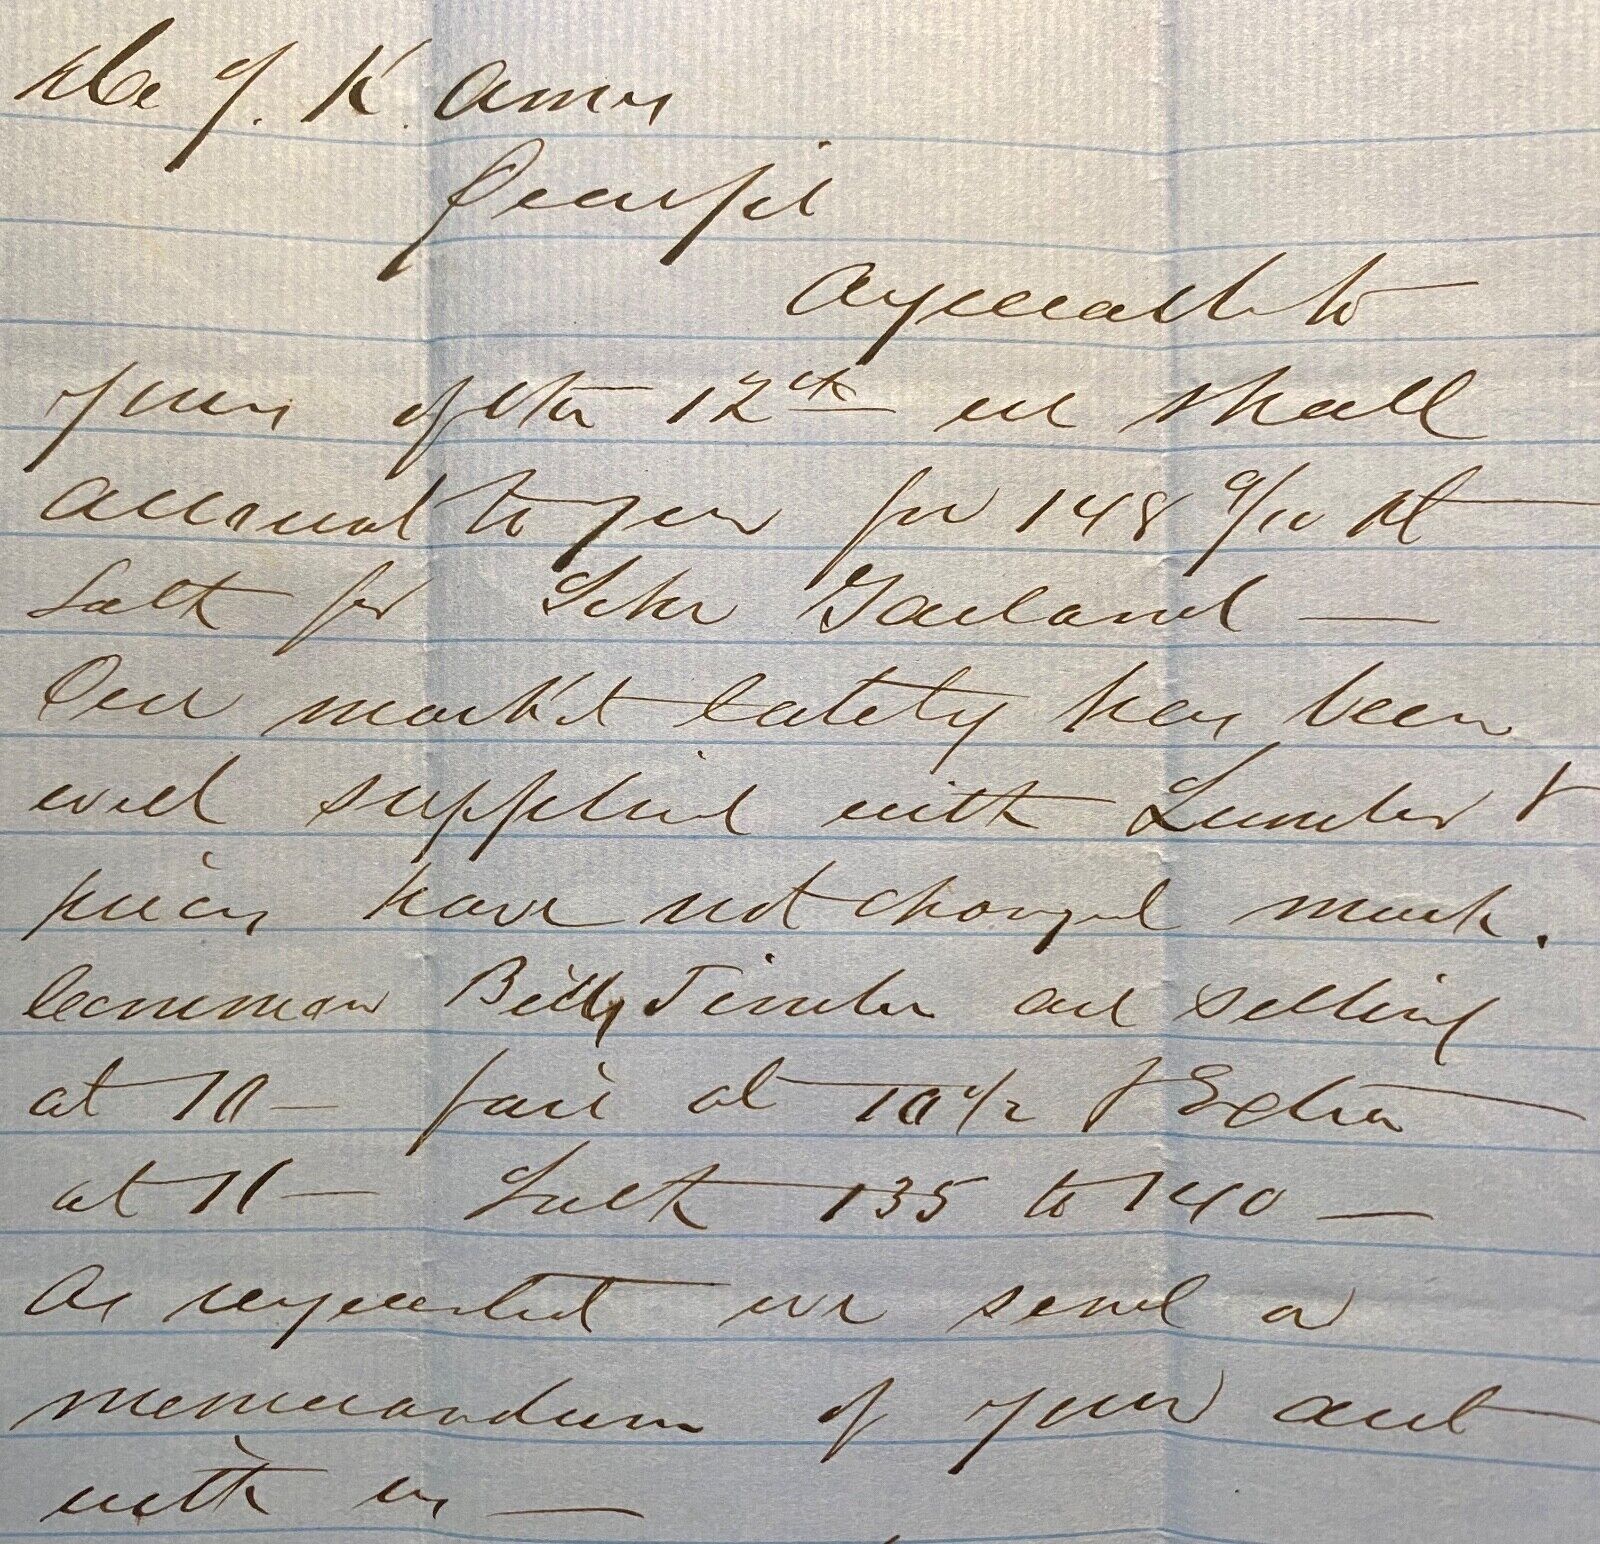 J. K. Ames
Dear Sir
Agreeable to
yours of the 12th we shall
account to you for 148 9/10
Salt for Schr Garland —
Our market lately has been
well supplied with Lumber &
prices have not changed much.
Common Timber are selling
at 10 — fair at 10 1/2 & Extra
at 11 — Salt 135 to 140 —
As requested we send a
memorandum of your acct
with us —